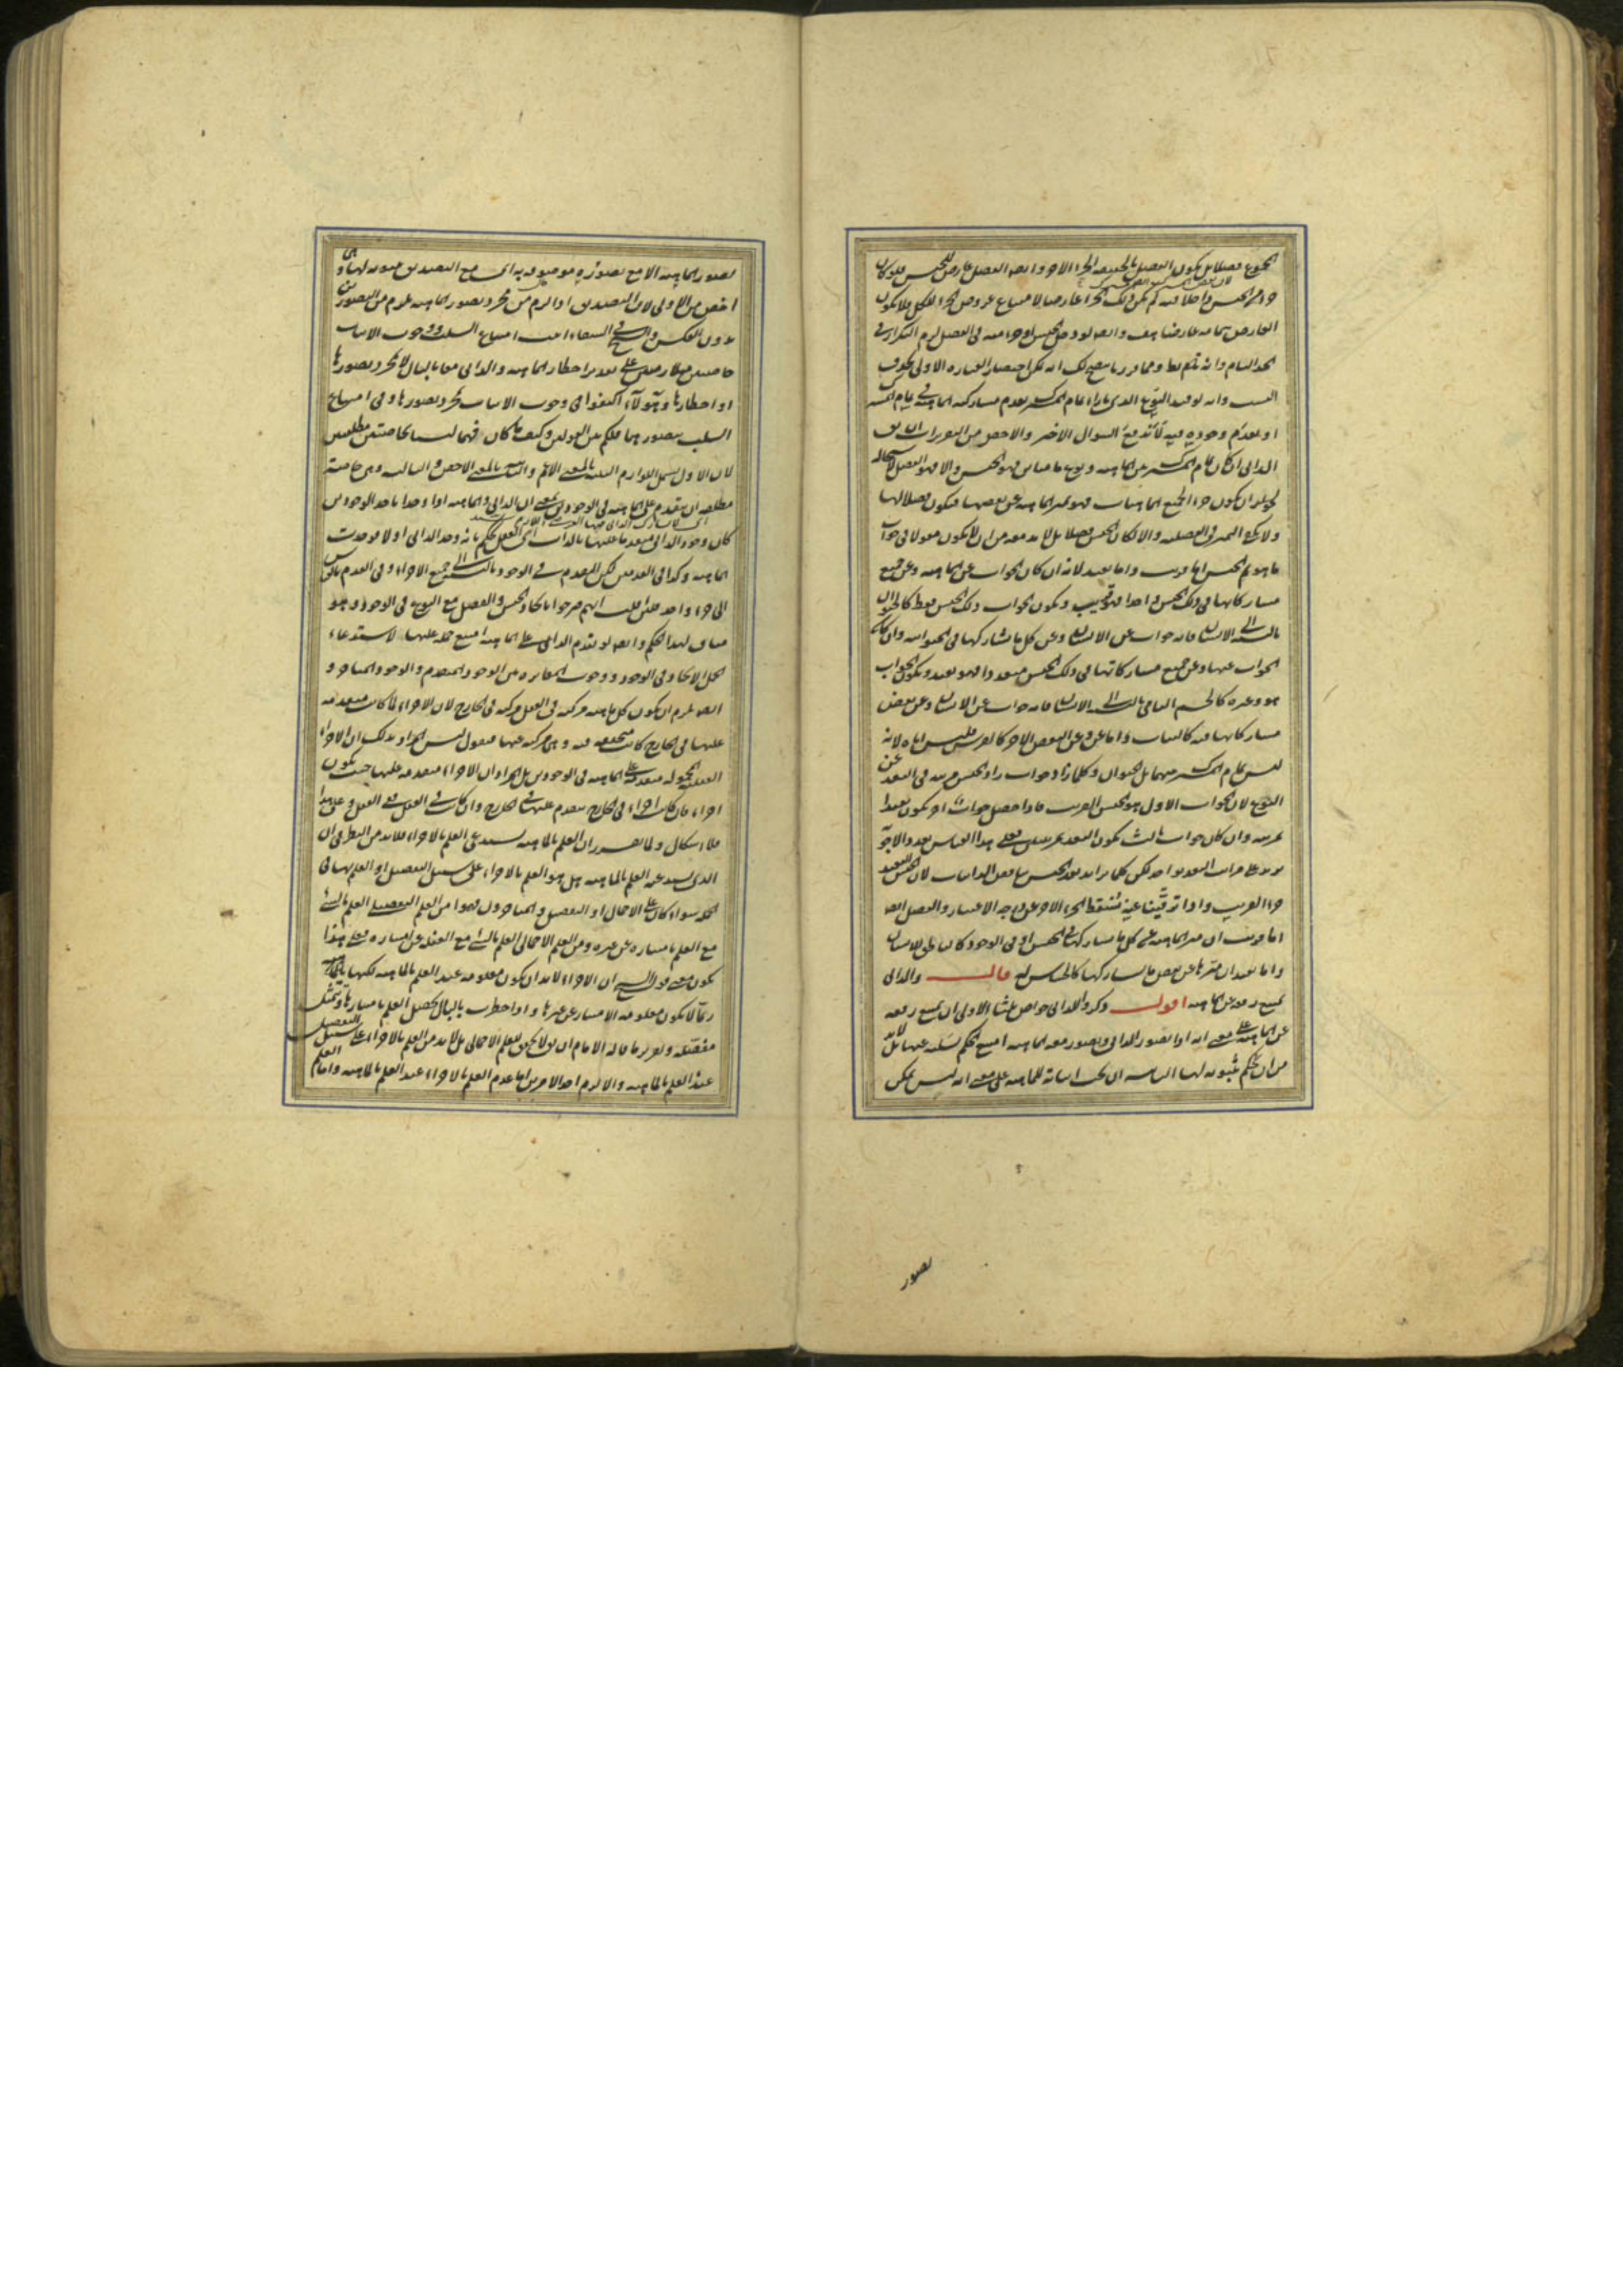 المجموع فصلا بل يكون الفصل بالحقيقة الجزء الاخر وايضا الفصل عارض للجنس فلو كان
جزء الجنس داخلا فيه لم يكن ذلك الجزء عارضا لامتناع عروض الجزء للكل فلا يكون
العارض بتمامه عارضا هف وايضا لو دخل الجنس او جزء منه في الفصل لزم التكرار في
الحد التام وانه
النسب وانه لو قيد النوع الذي بازاء تمام المشترك بعدم مشاركة الماهية في تمام المشترك
او بعدم وجوده فيه لاندفع السؤال الاخير والاخصر من التعريرات ان يق
الذاتي ان كان تمام المشترك بين الماهية ونوع ما مباين فهو الجنس والا فهو الفصل لاستحالة
ان يكون جزءا لجميع الماهيات فهو يميز الماهية عن بعضها فيكون فصلا لها
ولا يكفي التميز في الفصلية والا لكان الجنس فصلا بل لا بد معه من ان لا يكون مقولا في جواب
ما هو ثم الجنس اما قريب واما بعيد لانه ان كان الجواب عن الماهية وعن جميع
مشاركاتها في ذلك الجنس واحدا فهو قريب ويكون الجواب ذلك الجنس فقط كالحيوان
بالنسبة الى الانسان فانه جواب عن الانسان وعن كل ما يشاركها في الحيوانية وان كان
الجواب عنها وعن جميع مشاركاتها في ذلك الجنس متعددا فهو بعيد ويكون الجواب
هو وغيره كالجسم النامي بالنسبة الى الانسان فانه جواب عن الانسان وعن بعض
مشاركاتها فيه كالنبات واما عنه وعن البعض الاخر كالفرس فليس اياه لانه
ليس تمام المشترك بينهما بل الحيوان وكلما زاد جواب زاد الجنس مرتبة في البعد عن
النوع لان الجواب الاول هو الجنس القريب فاذا حصل جواب اخر يكون بعيدا
بمرتبة وان كان جواب ثالث يكون البعد بمرتبتين وعلى هذا القياس بعدد الاجوبة
يزيد على مراتب البعد بواحد لكن كلما تزايد بعد الجنس تناقص الذاتيات لان الجنس البعيد
جزء القريب واذا ترقينا عنه نسقط الجزء الاخر عن درجة الاعتبار والفصل ايضا
اما قريب ان ميز الماهية عن كل ما يشاركها في الجنس او في الوجود كالناطق للانسان
واما بعيد ان ميزها عن بعض ما يشاركها كالحساس له قال والذاتي
يمتنع رفعه عن الماهية اقول ذكروا للذاتي خواص ثلثا الاولى ان يمتنع رفعه
عن الماهية على معنى انه اذا تصور الذاتي وتصور معه الماهية امتنع الحكم بسلبه عنها بل لا بد
من ان يحكم بثبوته لها الثانية ان يجب اثباته للماهية على معنى انه ليس يمكن
تصور
تصور الماهية الا مع تصوره موصوفة به اى مع التصديق بثبوته لها وهي
اخص من الاولى لان التصديق اذا لزم من مجرد تصور الماهية يلزم من التصورين
بدون العكس والشيخ في الشفاء اثبت امتناع السلب ووجوب الاثبات
على تقدير اخطار الماهية والذاتي معا بالبال لا بمجرد تصورها
او اخطارها وهؤلاء اكتفوا في وجوب الاثبات بمجرد تصورها وفي امتناع
السلب بتصورهما فلكم بين القولين وكيف ما كان فهما ليستا بخاصتين مطلقتين
لان الاولى تشمل اللوازم البينة بالمعنى الاعم والثانية بالمعنى الاخص والثالثة وهي خاصة
مطلقة ان يتقدم على الماهية في الوجودين بمعنى ان الذاتي والماهية اذا وجدا باحد الوجودين
كان وجود الذاتي متقدما عليها بالذات اي العقل يحكم بانه وجد الذاتي اولا فوجدت
الماهية وكذا في العدمين لكن التقدم في الوجود بالنسبة الى جميع الاجزاء وفي العدم بالقياس
الى جزء واحد فان قلت انهم صرحوا باتحاد الجنس والفصل مع النوع في الوجود وهو
مناف لهذا الحكم وايضا لو تقدم الذاتي على الماهية امتنع حمله عليها لاستدعاء
الحمل الاتحاد في الوجود ووجوب المغايرة بين الوجود المتقدم والوجود المتاخر و
ايضا يلزم ان يكون كل ماهية مركبة في العقل مركبة في الخارج لان الاجزاء لما كانت متقدمة
عليها في الخارج كانت متحققة فيه وهي مركبة عنها فنقول ليس المراد بذلك ان الاجزاء
العقلية المحمولة متقدمة على الماهية في الوجودين بل المراد ان الاجزاء متقدمة عليها حيث يكون
اجزاء فان كانت اجزاء في الخارج يتقدم عليها في الخارج وان كانت في العقل ففي العقل وعلى هذا
فلا اشكال ولما تقرر ان العلم بالماهية يستدعي العلم بالاجزاء فلا بد من النظر في ان
الذي يستدعيه العلم بالماهية هل هو العلم بالاجزاء على سبيل التفصيل او العلم بها في
الجملة سواء كان على الاجمال او التفصيل والمتاخرون فهموا من العلم التفصيلي العلم بالشئ
مع العلم بامتيازه عن غيره ومن العلم الاجمالي العلم بالشئ مع الغفلة عن امتيازه فعلى هذا
يكون معنى قول الشيخ ان الاجزاء لا بد ان يكون معلومة عند العلم بالماهية لكنها
ربما لا يكون معلومة الامتياز عن غيرها واذا اخطرت بالبال يحصل العلم بامتيازها وتمثلت
مفصلة وتقرير ما قاله الامام ان يق لا يكفي العلم الاجمالي بل لا بد من العلم بالاجزاء على سبيل التفصيل
عند العلم بالماهية والا لزم احد الامرين اما عدم العلم بالاجزاء عند العلم بالماهية واما العلم